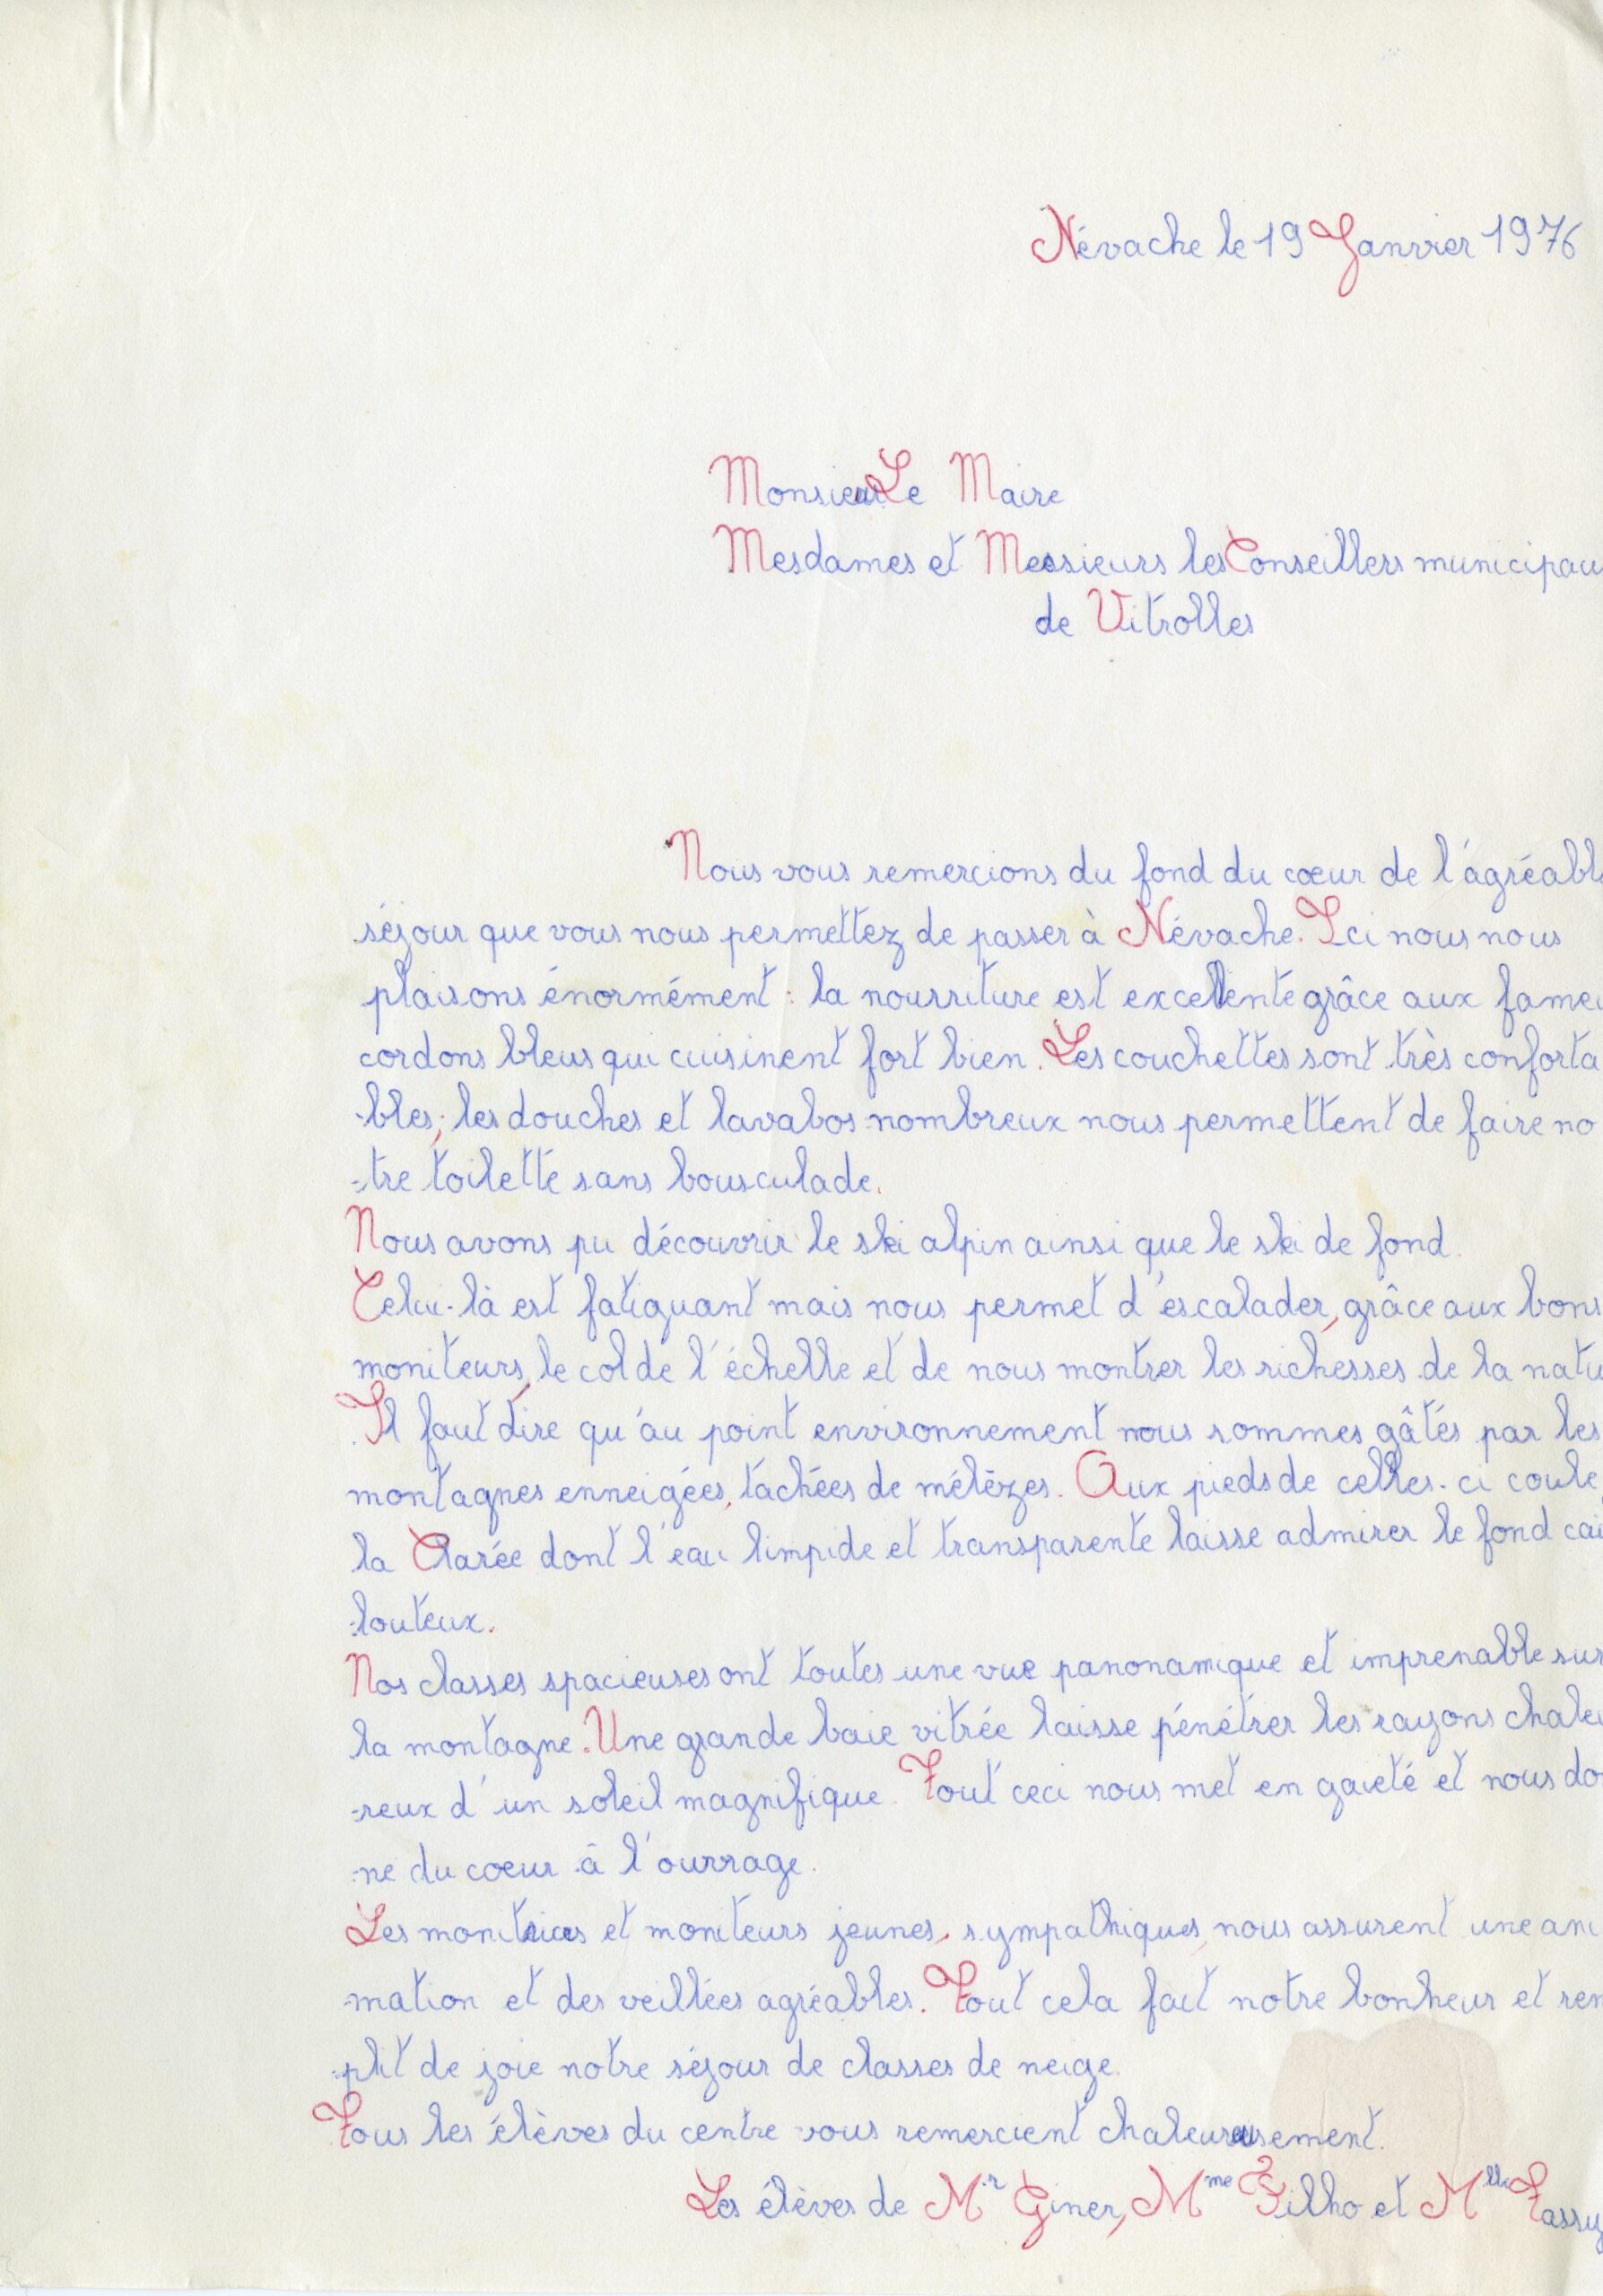 Névache le 19 Janvier 1976
Monsieur Le Maire
Mesdames et Messieurs les Conseillers municipau
de Vitrolles
Nous vous remercions du fond du cœur de l'agréabl
séjour que vous nous permettez de passer à Névache. Ici nous nous
plaisons énormément : la nourriture est excellente grâce aux fameu
cordons bleus qui cuisinent fort bien. Les couchettes sont très conforta
-bles; les douches et lavabos nombreux nous permettent de faire no
-tre toilette sans bousculade.
Nous avons pu découvrir le ski alpin ainsi que le ski de fond.
Celui-là est fatiguant mais nous permet d'escalader, grâce aux bons
moniteurs, le col de l'échelle et de nous montrer les richesses de la natu
Il faut dire qu'au point environnement nous sommes gâtés par les
montagnes enneigées, tachées de mélèzes. Aux pieds de celles-ci coule
la Clarée dont l'eau limpide et transparente laisse admirer le fond cai
-louteux.
Nos classes spacieuses ont toutes une vue panonamique et imprenable sur
la montagne. Une grande baie vitrée laisse pénétrer les rayons chaleu
-reux d'un soleil magnifique. Tout ceci nous met en gaieté et nous don
-ne du coeur à l'ouvrage.
Les monitrices et moniteurs jeunes, sympathiques, nous assurent une ani
-mation et des veillées agréables. Tout cela fait notre bonheur et rem
-plit de joie notre séjour de classes de neige.
Tous les élèves du centre vous remercient chaleureusement.
Les élèves de Mr Giner, Mme Filho et Mlle Tassy